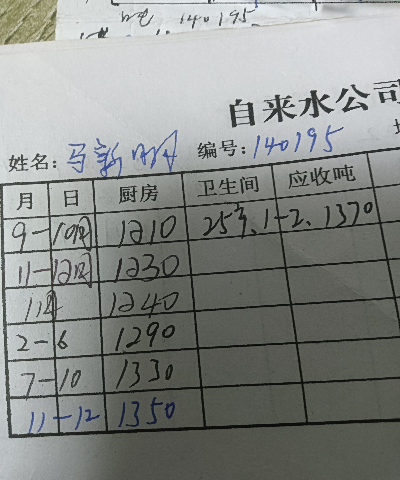 140195
自来水公司
姓名: 马新明 编号: 140195
月 日 厨房 卫生间 应收吨
9-10月 1210 25, 1-2, 1370
11-12月 1230
1月 1240
2-6 1290
7-10 1330
11-12 1350